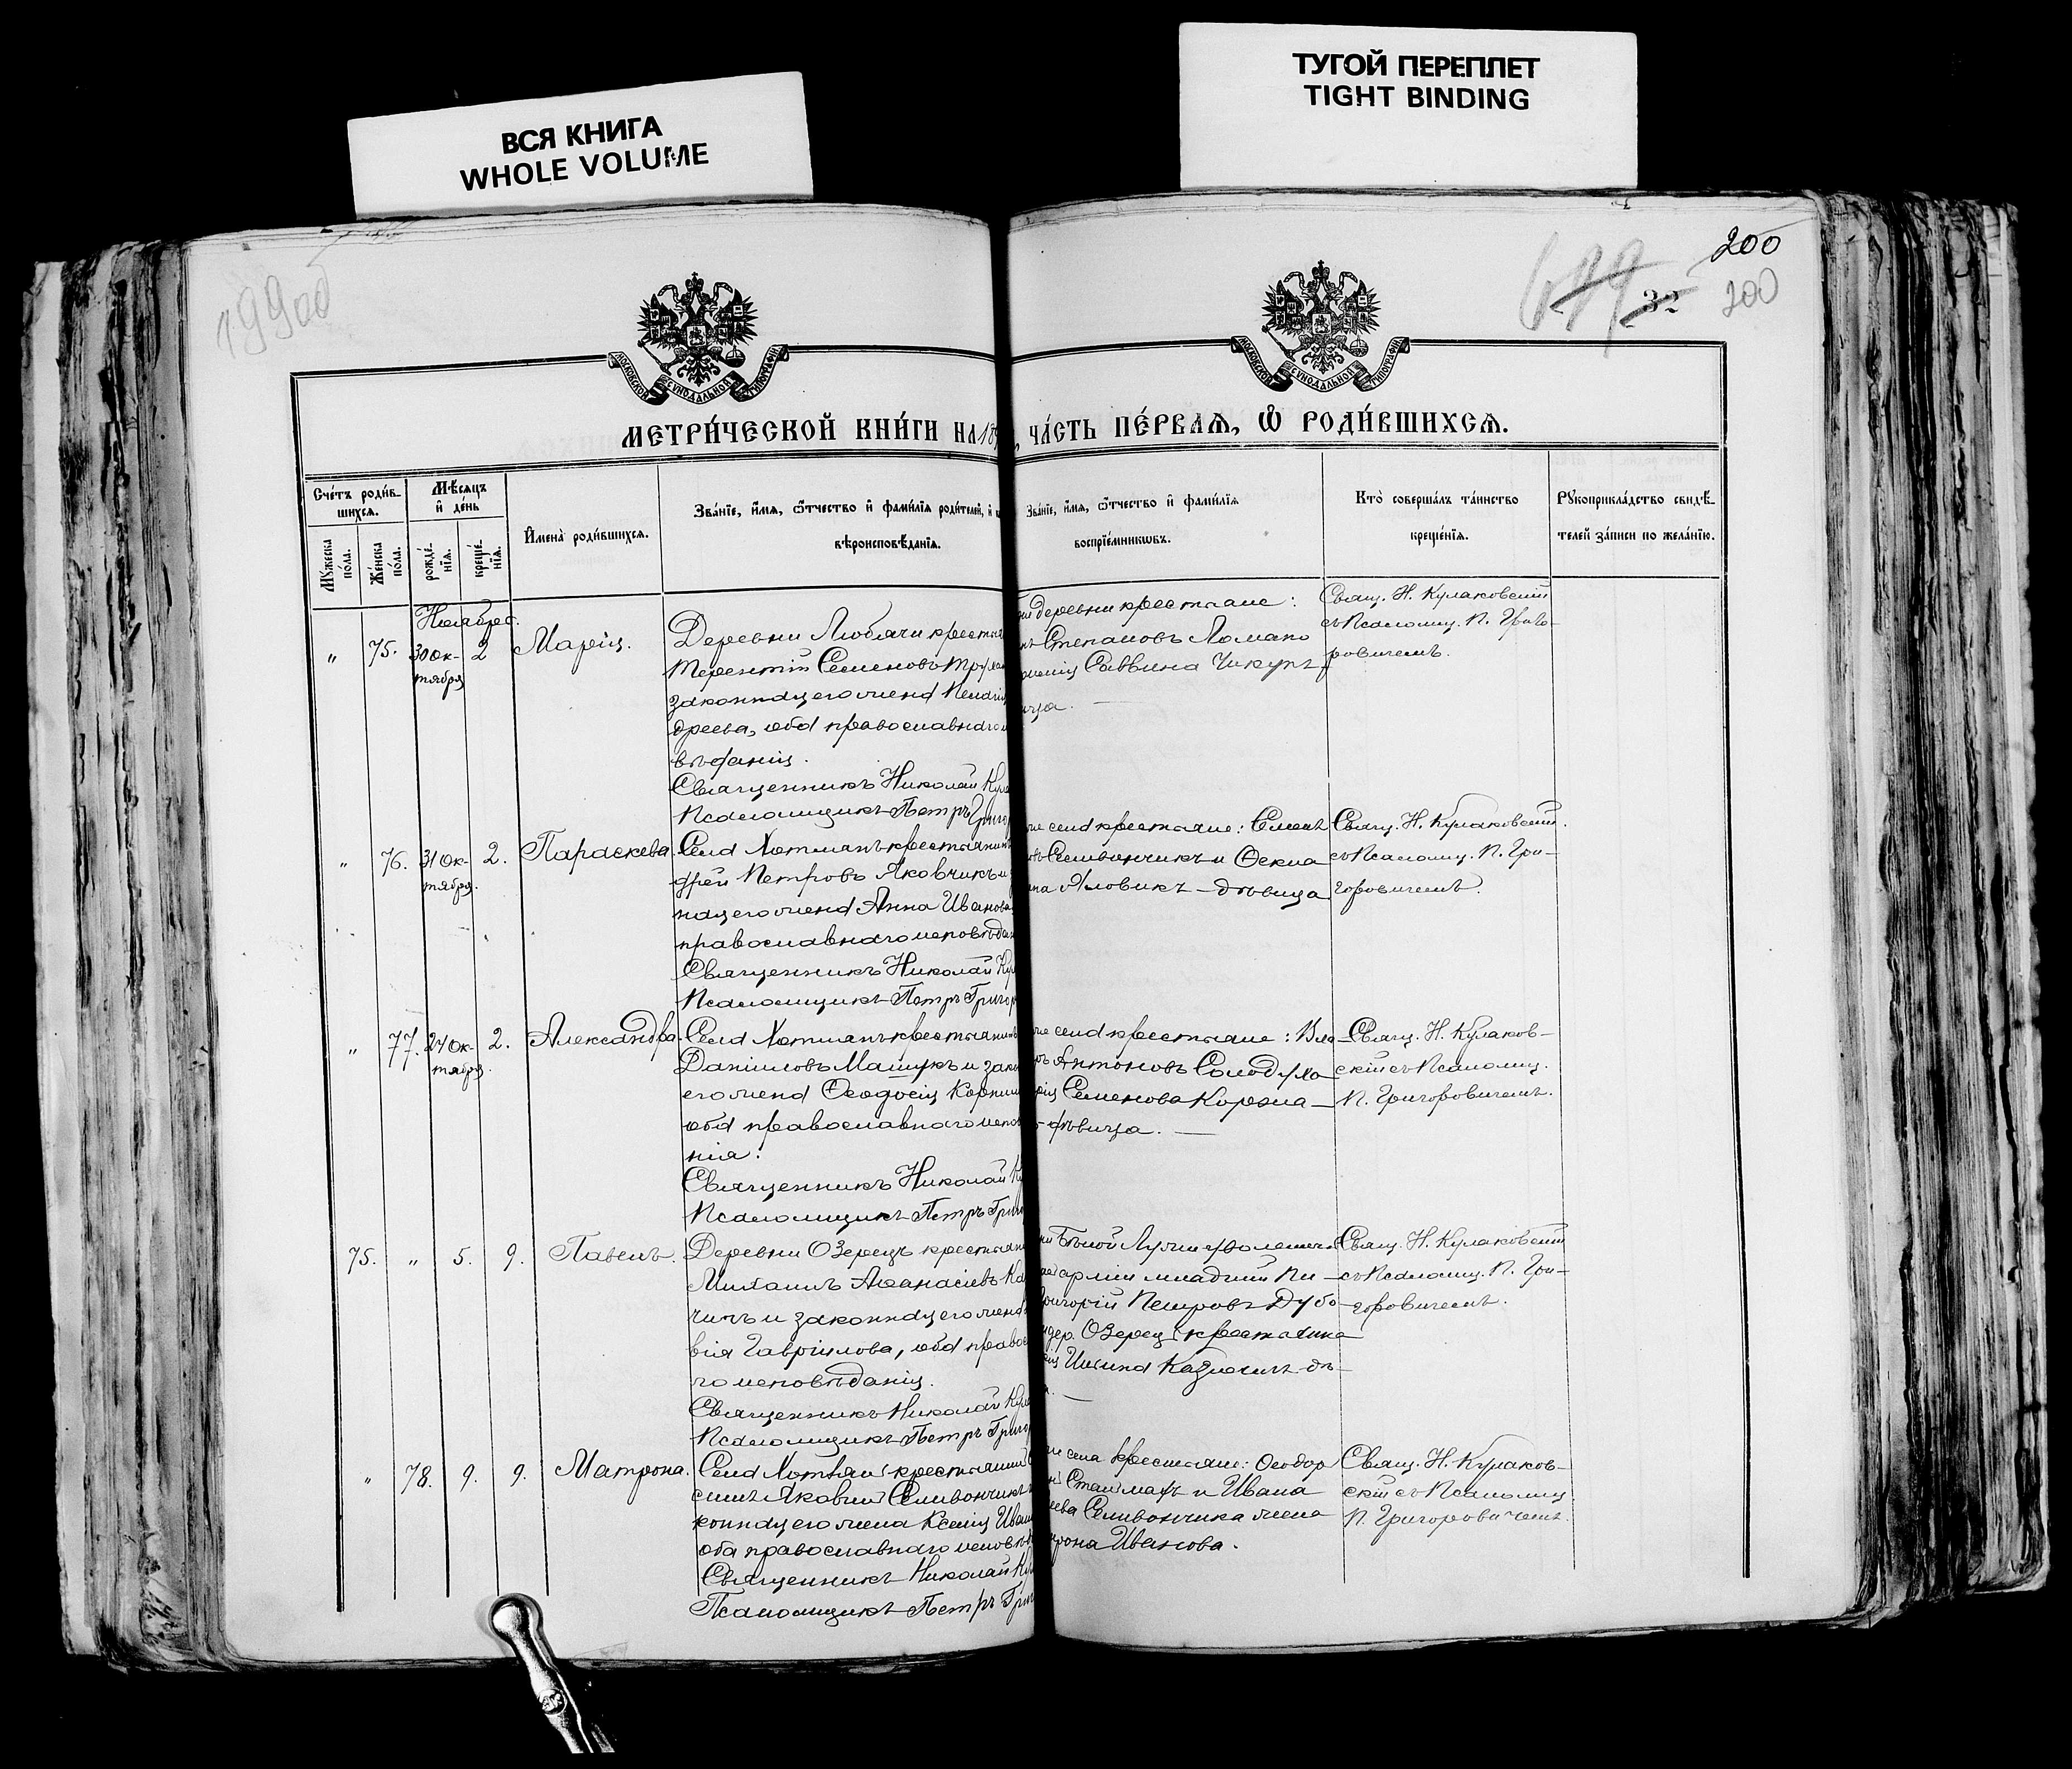 ВСЯ КНИГА
WHOLE VOLUME
ТУГОЙ ПЕРЕПЛЕТ
TIGHT BINDING
199об
200
32
200
МОСКОВСКОЙ СѴНОДАЛЬНОЙ ТИПОГРАФІИ
МОСКОВСКОЙ СѴНОДАЛЬНОЙ ТИПОГРАФІИ
МЕТРИ́ЧЕСКОЙ КНИ́ГИ НА 18
ЧА́СТЬ ПЕ́РВАѦ, Ѿ РОДИ́ВШИХСѦ.
Сче́тъ роди́в-
шихсѧ.
Му́жеска по́ла.
Же́нска по́ла.
Мѣ́сяцъ и҆ де́нь
рожде́-
нїѧ.
креще́-
нїѧ.
И҆мена̀ роди́вшихсѧ.
Зва́нїе, и҆́мѧ, ѻ҆́тчество и҆ фами́лїѧ роди́телей, и҆
вѣроисповѣ́данїѧ.
Зва́нїе, и҆́мѧ, ѻ҆́тчество и҆ фами́лїѧ
воспрїе́мникѡвъ.
Кто̀ соверша́лъ та́инство
креще́нїѧ.
Рꙋкоприкла́дство свидѣ́-
телей за́писи по жела́нїю.
Ноябрь.
" 75. 30 Ок-
тября 2 Марія.
Деревни Любачи крестья
Терентій Семеновъ
законная его жена
дреева, оба православнаго
вѣданія.
Священникъ Николай Кула
Псаломщикъ Петръ Григор
деревни крестьяне:
Степановъ Ломако
Саввина Чикунъ
ица. —
Свящ. Н. Кулаковскій
съ Псаломщ. П. Григо-
ровичемъ.
" 76. 31 Ок-
тября. 2. Параскева.
Села Хотынь крестьянинъ
дрей Петровъ Яковчикъ и
ная его жена Анна Иванова
православнаго исповѣдан
Священникъ Николай Кул
Псаломщикъ Петръ Григор
села крестьяне:
Селивончикъ и
Яловикъ – дѣвица
Свящ. Н. Кулаковскій.
съ Псаломщ. П. Гри-
горовичемъ.
" 77. 24 Ок-
тября. 2. Александра.
Села Хотынь крестьянинъ
Даніиловъ Машукъ и зак
его жена Ѳеодосія Корнил
оба православнаго испо
нія:
Священникъ Николай Ку
Псаломщикъ Петръ Григ
села крестьяне:
Антоновъ Солодухо
Семенова
дѣвица. —
Свящ. Н. Кулаков-
скій съ Псаломщ.
П. Григоровичемъ.
75. " 5. 9. Павелъ.
Деревни Озерецъ крестьян
Михаилъ Аѳанасіевъ Ка
чичъ и законная его жена
вія Гавріилова, оба правос
го исповѣданія.
Священникъ Николай Кула
Псаломщикъ Петръ Григор
арміи младшій Пи-
Григорій Петровъ Дубо-
дер. Озерец крестьянка
Казючичъ дѣ-
Свящ. Н. Кулаковскій
съ Псаломщ. П. Гри-
горовичемъ.
" 78. 9. 9. Матрона.
Села Хотынь крестьянинъ
Яковлевъ Селивончикъ
конная его жена Ксенія Иван
оба православнаго исповѣ
Священникъ Николай Кул
Псаломщикъ Петръ Григ
села крестьяне: Ѳеодор
и Ивана
Селивончика жена
рона Иванова.
Свящ. Н. Кулаков-
скій съ Псаломщ.
П. Григоровичемъ.